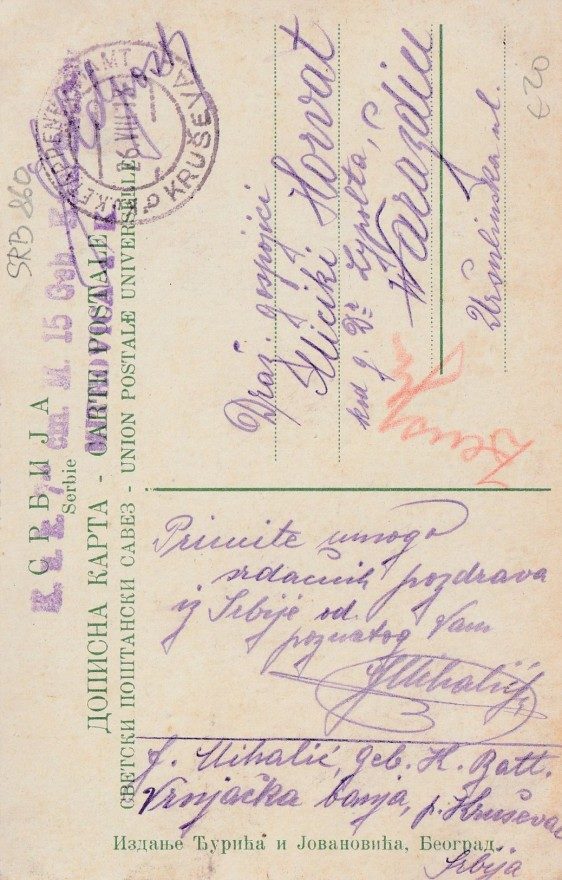 С Р Б И Ј А
Serbie
ДОПИСНА КАРТА - CARTE POSTALE
СВЕТСКИ ПОШТАНСКИ САВЕЗ - UNION POSTALE UNIVERSELLE
K. u. K. 7 cm. M. 15 Geb.
KRUŠEVAC
SRB 260
€20
Draž. gospojci
Miciki Horvat
kod g. Dr Lypolta,
Waraždin
Uršulinska ul.
Primite mnogo
srdačnih pozdrava
iz Srbije od
poznatog Vam
Mihalić
J. Mihalić, Geb. K. Batt.
Vrnjačka banja, p. Kruševac
Srbija
Издање Ђурића и Јовановића, Београд.